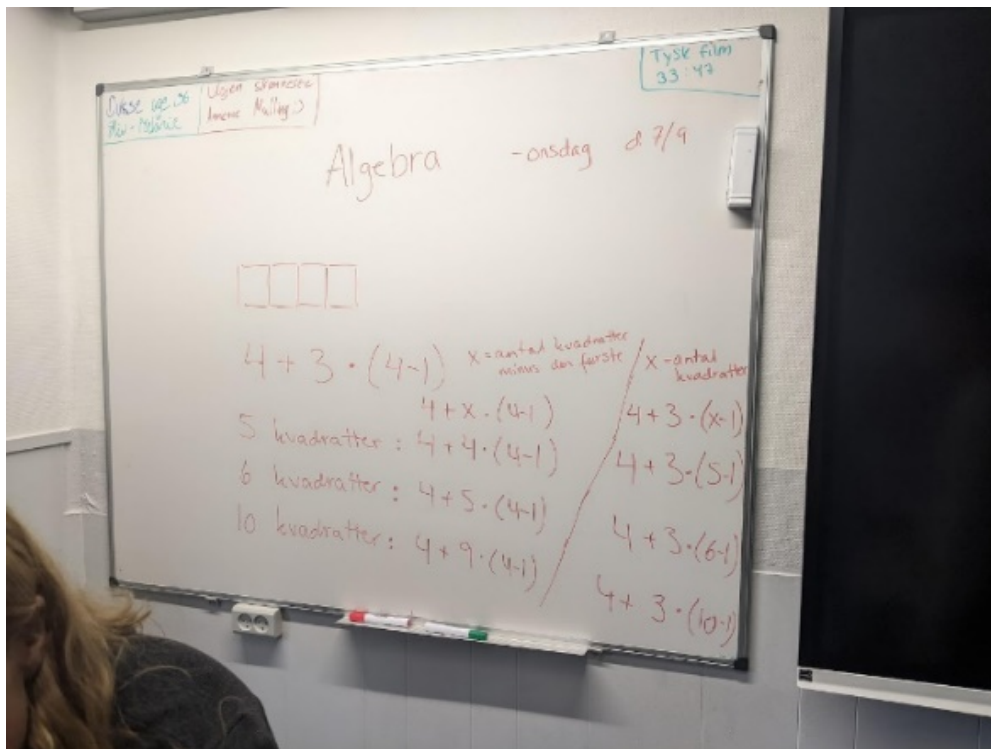 Dusse uge 36
Ugen
Tysk film
33:47
Algebra - onsdag d. 7/9
4 + 3 · (4-1)
x = antal kvadratter
minus den første
4 + x · (4-1)
5 kvadratter : 4 + 4 · (4-1)
6 kvadratter : 4 + 5 · (4-1)
10 kvadratter : 4 + 9 · (4-1)
x - antal
kvadratter
4 + 3 · (x-1)
4 + 3 · (5-1)
4 + 3 · (6-1)
4 + 3 · (10-1)